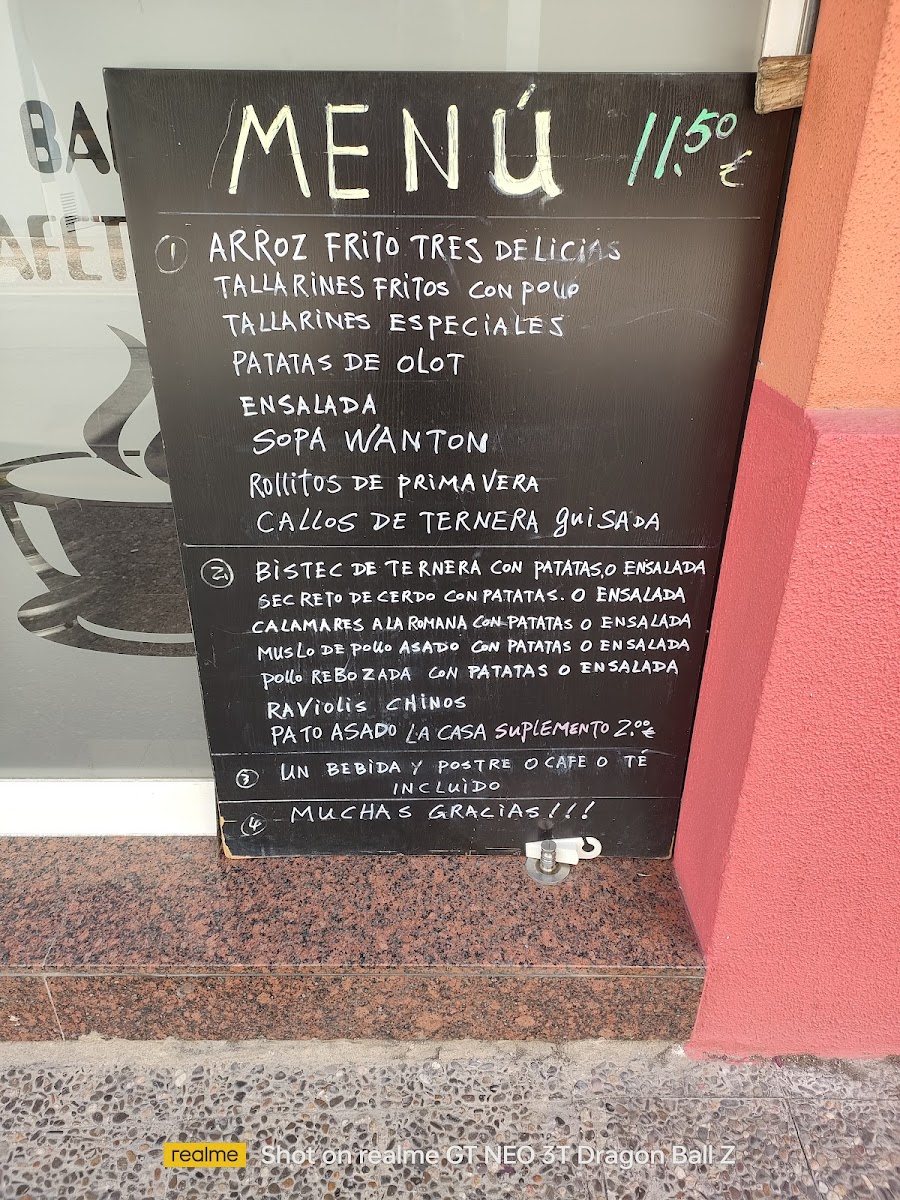 BA
AFET
MENÚ 11.50 €
1 ARROZ FRITO TRES DELICIAS
TALLARINES FRITOS CON POLLO
TALLARINES ESPECIALES
PATATAS DE OLOT
ENSALADA
SOPA WANTON
ROLLITOS DE PRIMAVERA
CALLOS DE TERNERA GUISADA
2 BISTEC DE TERNERA CON PATATAS, O ENSALADA
SECRETO DE CERDO CON PATATAS. O ENSALADA
CALAMARES A LA ROMANA CON PATATAS O ENSALADA
MUSLO DE POLLO ASADO CON PATATAS O ENSALADA
POLLO REBOZADA CON PATATAS O ENSALADA
RAVIOLIS CHINOS
PATO ASADO LA CASA SUPLEMENTO 2.00 €
3 UN BEBIDA Y POSTRE O CAFE O TÉ
INCLUIDO
4 MUCHAS GRACIAS!!!
realme Shot on realme GT NEO 3T Dragon Ball Z